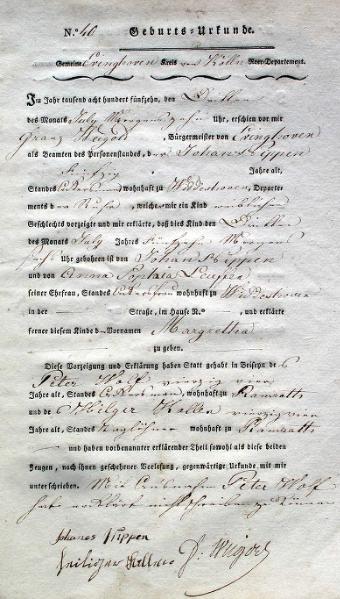 N.º 40 Geburts-Urkunde.
Gemeine Evinghoven Kreis von Kölln Roer-Departement.
Im Jahr tausend acht hundert fünfzehn, den Dritten
des Monats July Morgens Uhr, erschien vor mir
Franz Weigold, Bürgermeister von Evinghoven
als Beamten des Personenstandes, der Johan Rippen
Fünfzig Jahre alt,
Standes Ackersman wohnhaft zu Widdeshoven, Departe-
ments der Ruhr, welcher mir ein Kind weiblichen
Geschlechts vorzeigte und mir erklärte, daß dies Kind den Dritten
des Monats July Jahres Fünfzehn Morgens
Uhr gebohren ist von Johan Rippen
und von Anna Sophia
seiner Ehefrau, Standes Ackersfrau wohnhaft zu Widdeshoven
in der — Straße, im Hause N.º — , und erklärte
ferner diesem Kinde den Vornamen Margretha
zu geben.
Diese Vorzeigung und Erklärung haben Statt gehabt in Beiseyn des
Peter Wolf vierzig vier
Jahre alt, Standes Ackersman, wohnhaft zu Ramrath
und de Hilger Kallen vierzig vier
Jahre alt, Standes Taglöhner wohnhaft zu Ramrath
und haben vorbenannter erklärender Theil sowohl als diese beiden
Zeugen, nach ihnen geschehener Vorlesung, gegenwärtige Urkunde mit mir
unterschrieben. Mit Ausnahm Peter Wolf
hat erklärt nicht schreiben zu können
Johanes Rippen
Kallen